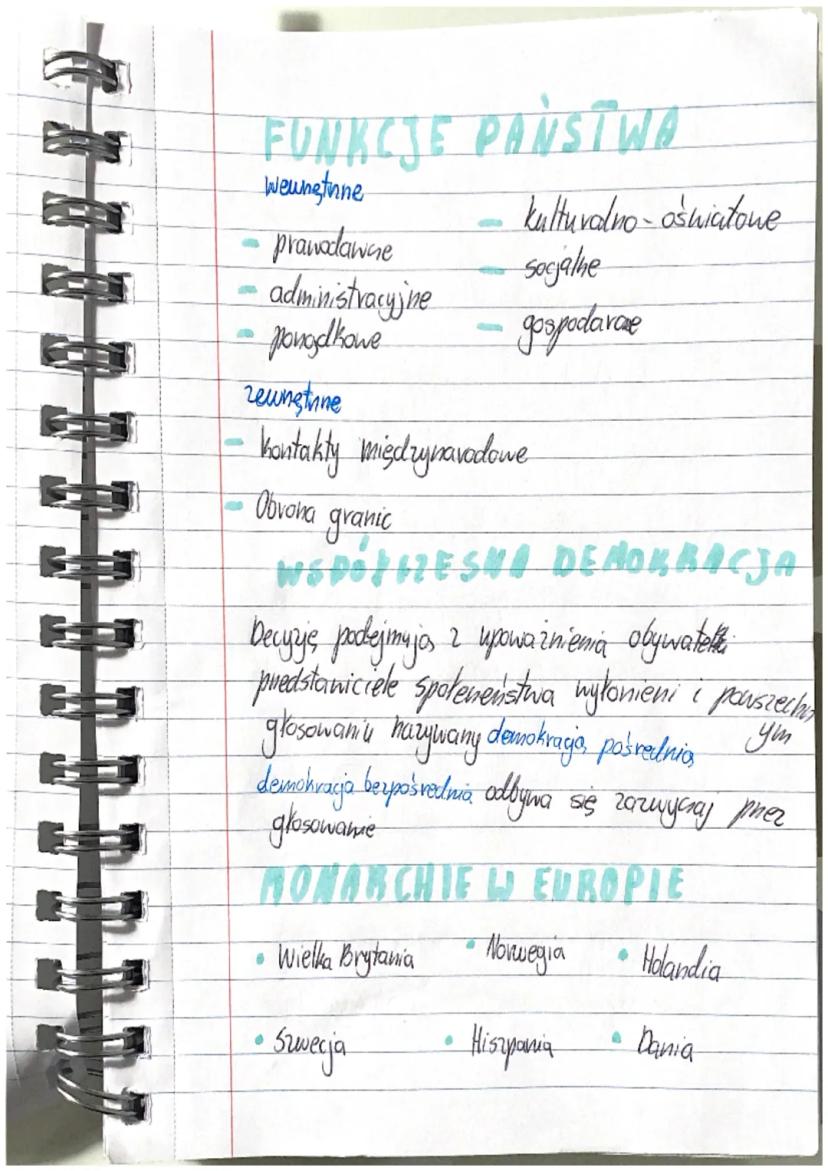 FUNKCJE PAŃSTWA
wewnętrzne
- prawodawcze
- administracyjne
- porządkowe
- kulturalno-oświatowe
- socjalne
- gospodarcze
zewnętrzne
- kontakty międzynarodowe
- Obrona granic
WSPÓŁCZESNA DEMOKRACJA
Decyzję podejmują z upoważnienia obywatelki
przedstawiciele społeczeństwa wyłonieni i powszechn
ym
głosowaniu nazywany demokracją pośrednią
demokracja bezpośrednia odbywa się zazwyczaj przez
głosowanie
MONARCHIE W EUROPIE
• Wielka Brytania • Norwegia • Holandia
• Szwecja • Hiszpania • Dania